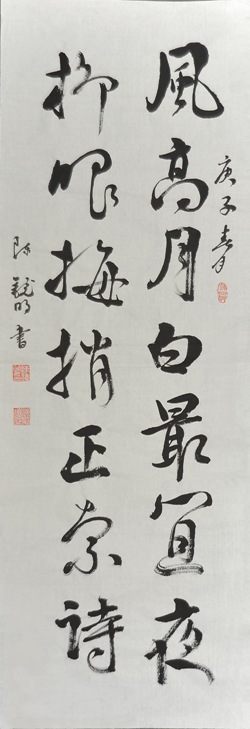 庚子春月
風高月白最宜夜
柳眼梅梢正索詩
書